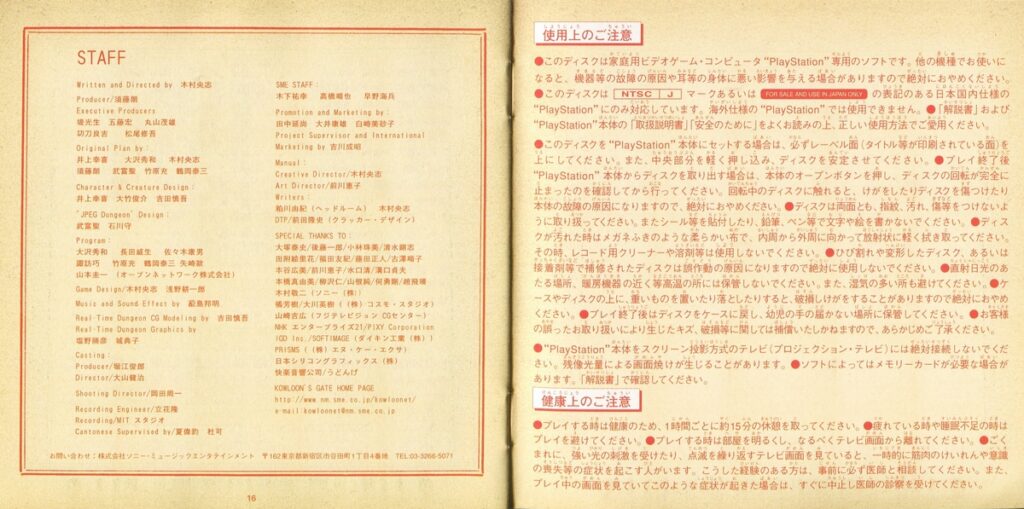 STAFF
Written and Directed by 木村央志
Producer/須藤朗
Executive Producers
盛光生 五藤宏 丸山茂雄
切刀良吉 松尾修吾
Original Plan by:
井上幸喜 大沢秀和 木村央志
須藤朗 武富聖 竹原充 鶴岡泰三
Character & Creature Design:
井上幸喜 大竹俊介 吉田慎吾
'JPEG Dungeon' Design:
武富聖 石川守
Program:
大沢秀和 長田誠生 佐々木康男
諏訪巧 竹原充 鶴岡泰三 矢崎徹
山本圭一 (オープンネットワーク株式会社)
Game Design/木村央志 浅野耕一郎
Music and Sound Effect by 蓜島邦明
Real-Time Dungeon CG Modeling by 吉田慎吾
Real-Time Dungeon Graphics by
塩野勝彦 城典子
Casting:
Producer/堀江俊郎
Director/大山健治
Shooting Director/岡田周一
Recording Engineer/立花隆
Recording/MIT スタジオ
Cantonese Supervised by/夏偉韵 杜可
SME STAFF:
木下祐幸 高橋唱也 早野海兵
Promotion and Marketing by:
田中延尚 大井康雄 白崎美砂子
Project Supervisor and International
Marketing by 吉川成昭
Manual:
Creative Director/木村央志
Art Director/前川恵子
Writers:
粕川由紀(ヘッドルーム) 木村央志
DTP/前田隆史(クラッカー・デザイン)
SPECIAL THANKS TO:
大塚泰史/後藤一郎/小林珠美/清水錦志
田附絵里花/福田友紀/藤田正人/古澤晴子
本谷広美/前川恵子/水口清/溝口貞夫
本橋真由美/柳沢仁/山根純/何勇剛/趙飛瑛
木村敬二(ソニー(株))
橘芳樹/大川英樹((株)コスモ・スタジオ)
山崎吉広(フジテレビジョン CGセンター)
NHK エンタープライズ21/PIXY Corporation
IGD Inc./SOFTIMAGE(ダイキン工業(株))
PRiSMS((株)エヌ・ケー・エクサ)
日本シリコングラフィックス(株)
快楽音響公司/うとんげ
KOWLOON'S GATE HOME PAGE
http://www.nm.sme.co.jp/knowloonet/
e-mail kowloonet@nm.sme.co.jp
お問い合わせ:株式会社ソニー・ミュージックエンタテインメント 〒162東京都新宿区市谷田町1丁目4番地 TEL:03-3266-5071
16
使用上のご注意
●このディスクは家庭用ビデオゲーム・コンピュータ“PlayStation”専用のソフトです。他の機種でお使いに
なると、機器等の故障の原因や耳等の身体に悪い影響を与える場合がありますので絶対におやめください。
●このディスクは NTSC J マークあるいは FOR SALE AND USE IN JAPAN ONLY の表記のある日本国内仕様の
“PlayStation”にのみ対応しています。海外仕様の“PlayStation”では使用できません。●「解説書」および
“PlayStation”本体の「取扱説明書」「安全のために」をよくお読みの上、正しい使用方法でご愛用ください。
●このディスクを“PlayStation”本体にセットする場合は、必ずレーベル面(タイトル等が印刷されている面)を
上にしてください。また、中央部分を軽く押し込み、ディスクを安定させてください。●プレイ終了後
“PlayStation”本体からディスクを取り出す場合は、本体のオープンボタンを押し、ディスクの回転が完全に
止まったのを確認してから行ってください。回転中のディスクに触れると、けがをしたりディスクを傷つけたり
本体の故障の原因になりますので、絶対におやめください。●ディスクは両面とも、指紋、汚れ、傷等をつけないよ
うに取り扱ってください。またシール等を貼付したり、鉛筆、ペン等で文字や絵を書かないでください。●ディス
クが汚れた時はメガネふきのような柔らかい布で、内周から外周に向かって放射状に軽く拭き取ってください。
その時、レコード用クリーナーや溶剤等は使用しないでください。●ひび割れや変形したディスク、あるいは
接着剤等で補修されたディスクは誤作動の原因になりますので絶対に使用しないでください。●直射日光のあ
たる場所、暖房機器の近く等高温の所には保管しないでください。また、湿気の多い所も避けてください。●ケ
ースやディスクの上に、重いものを置いたり落としたりすると、破損しけがをすることがありますので絶対におやめ
ください。●プレイ終了後はディスクをケースに戻し、幼児の手の届かない場所に保管してください。●お客様
の誤ったお取り扱いにより生じたキズ、破損等に関しては補償いたしかねますので、あらかじめご了承ください。
●“PlayStation”本体をスクリーン投影方式のテレビ(プロジェクション・テレビ)には絶対接続しないでくだ
さい。残像光量による画面焼けが生じることがあります。●ソフトによってはメモリーカードが必要な場合が
あります。「解説書」で確認してください。
健康上のご注意
●プレイする時は健康のため、1時間ごとに約15分の休憩を取ってください。●疲れている時や睡眠不足の時は
プレイを避けてください。●プレイする時は部屋を明るくし、なるべくテレビ画面から離れてください。●ごく
まれに、強い光の刺激を受けたり、点滅を繰り返すテレビ画面を見ていると、一時的に筋肉のけいれんや意識
の喪失等の症状を起こす人がいます。こうした経験のある方は、事前に必ず医師と相談してください。また、
プレイ中の画面を見ていてこのような症状が起きた場合は、すぐに中止し医師の診察を受けてください。